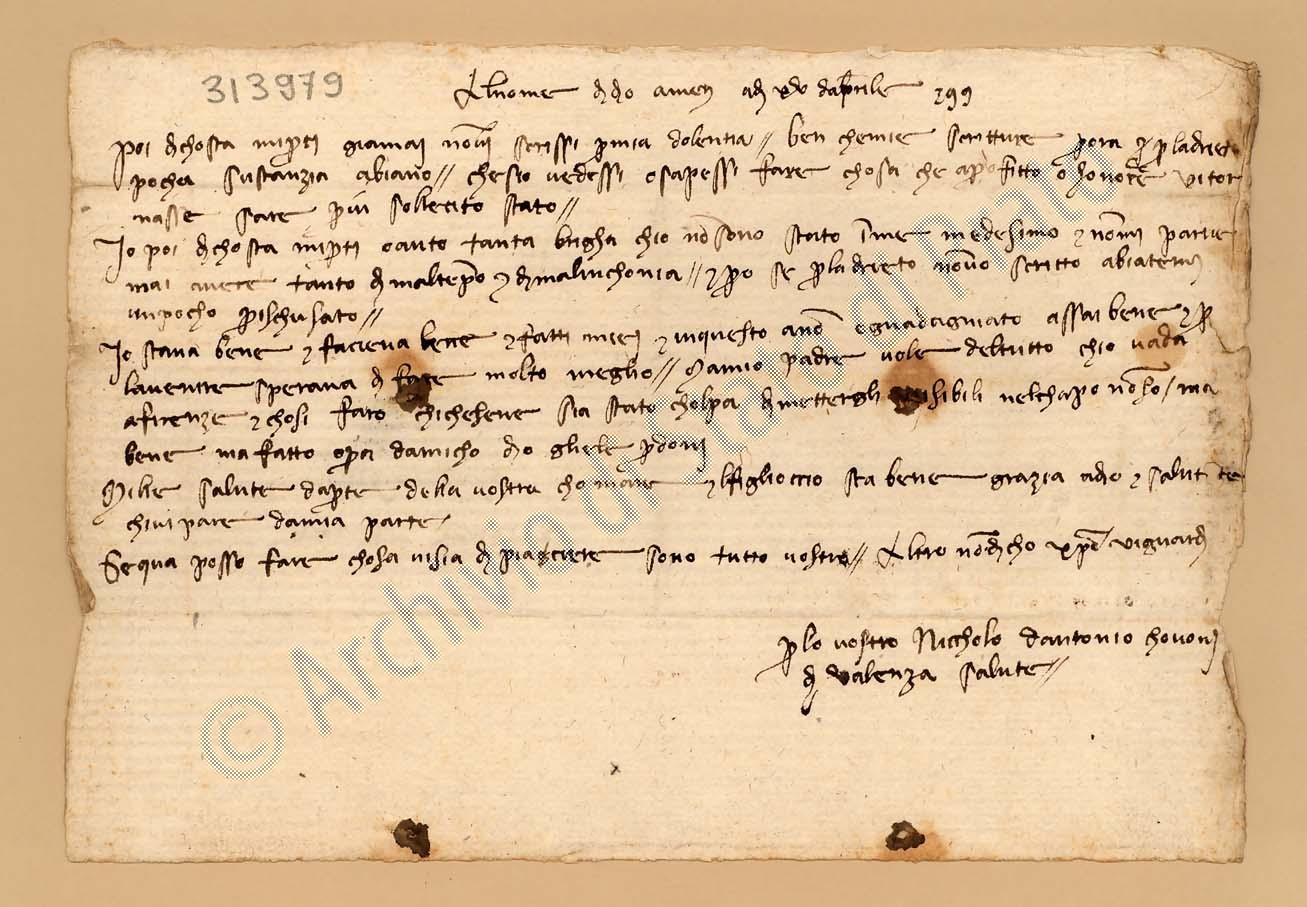 313979
Al nome di dio amen adi xv daprile 1399
Poi di chosta mi parti giamai non vi scrissi per mia dolentia // ben che mie scritture per ora e per ladrieto
pocha sustanzia abiano // che sio vedessi o sapessi fare chosa che a profitto o honore vi tor
nasse sare piu sollecito stato //
Io poi di chosta mi parti o auto tanta brigha chio non sono stato in me medesimo e non mi parve
mai avere tanto di mal tempo e di malinchonia // e pero se per ladrieto non vo scritto abiatemi
un pocho per ischusato //
Io stava bene e faciena bene e fatti miei e in questo anno o guadagniato assai bene e per
lavenire sperava di fare molto meglio // Ma mio padre vole del tutto chio vada
a firenze e chosi faro chi che sene sia stato cholpa di mettergli sibili nel chapo non so / ma
bene ma fatto opera damicho dio gliele perdoni
Mille salute da parte della vostra chomare e l figlioccio sta bene grazia a dio e salutate
chi vi pare da mia parte
Se qua posso fare chosa vi sia di piaciere sono tutto vostro // Altro non dicho xpo vi guardi
per lo vostro Niccholo dantonio chovoni
di Valenza salute //
© Archivio di Stato di Prato